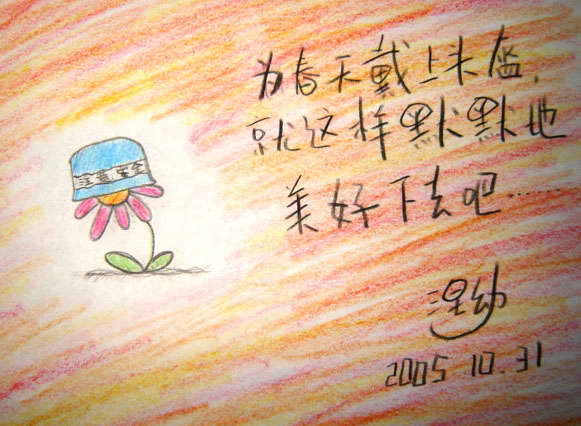 为春天戴上头盔,
就这样默默地
美好下去吧……
涅幼
2005.10.31